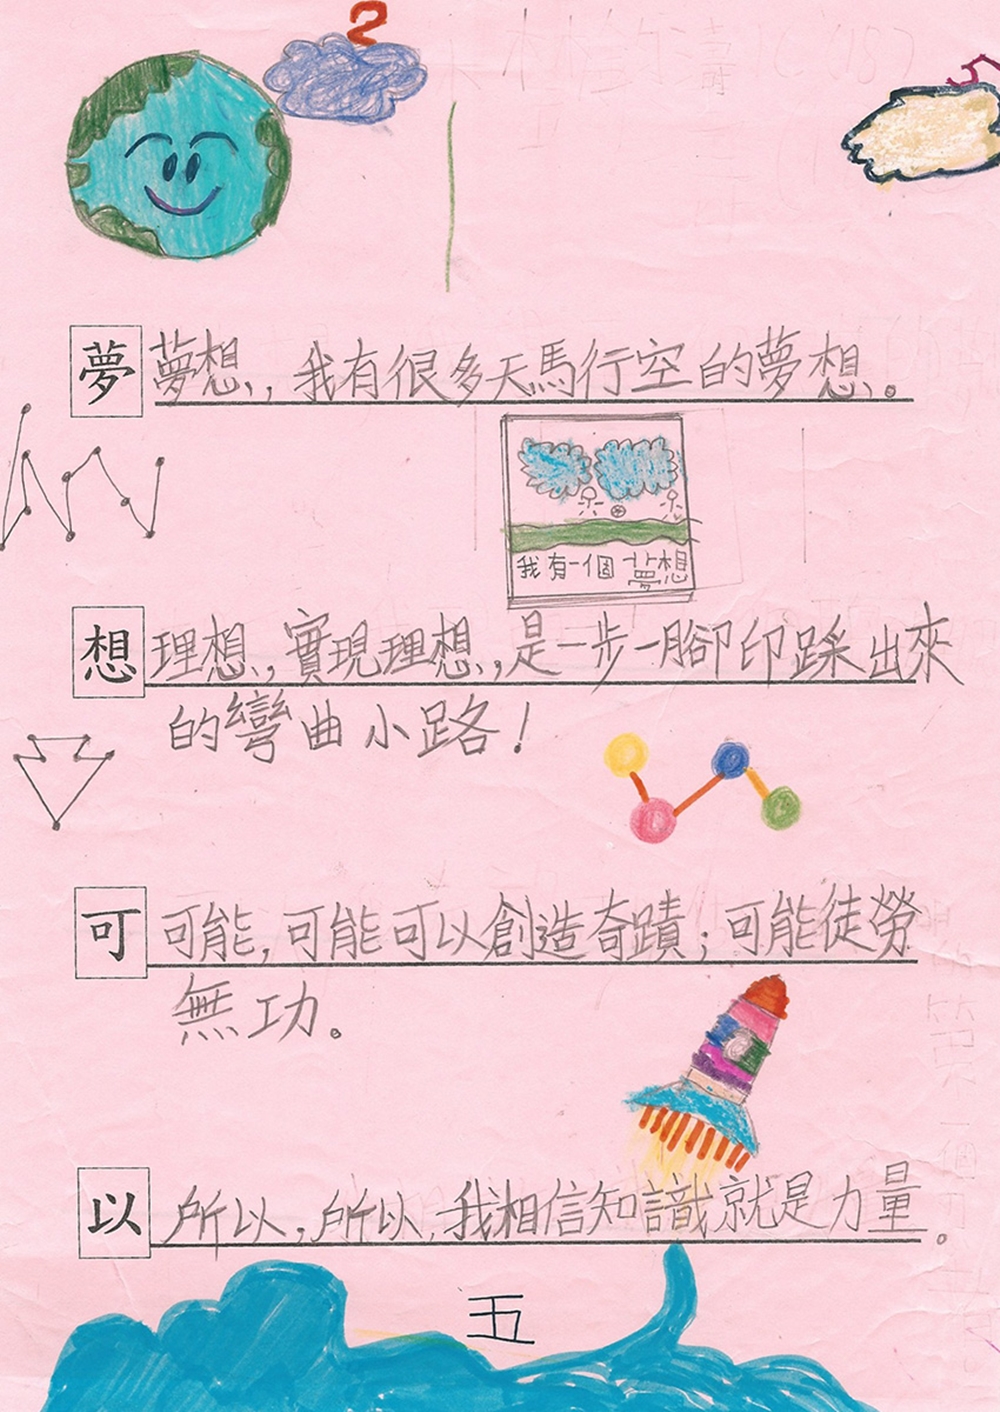 2
夢 夢想，我有很多天馬行空的夢想。
我有一個夢想
想 理想，實現理想，是一步一腳印踩出來
的彎曲小路！
可 可能，可能可以創造奇蹟；可能徒勞
無功。
以 所以，所以，我相信知識就是力量。
五